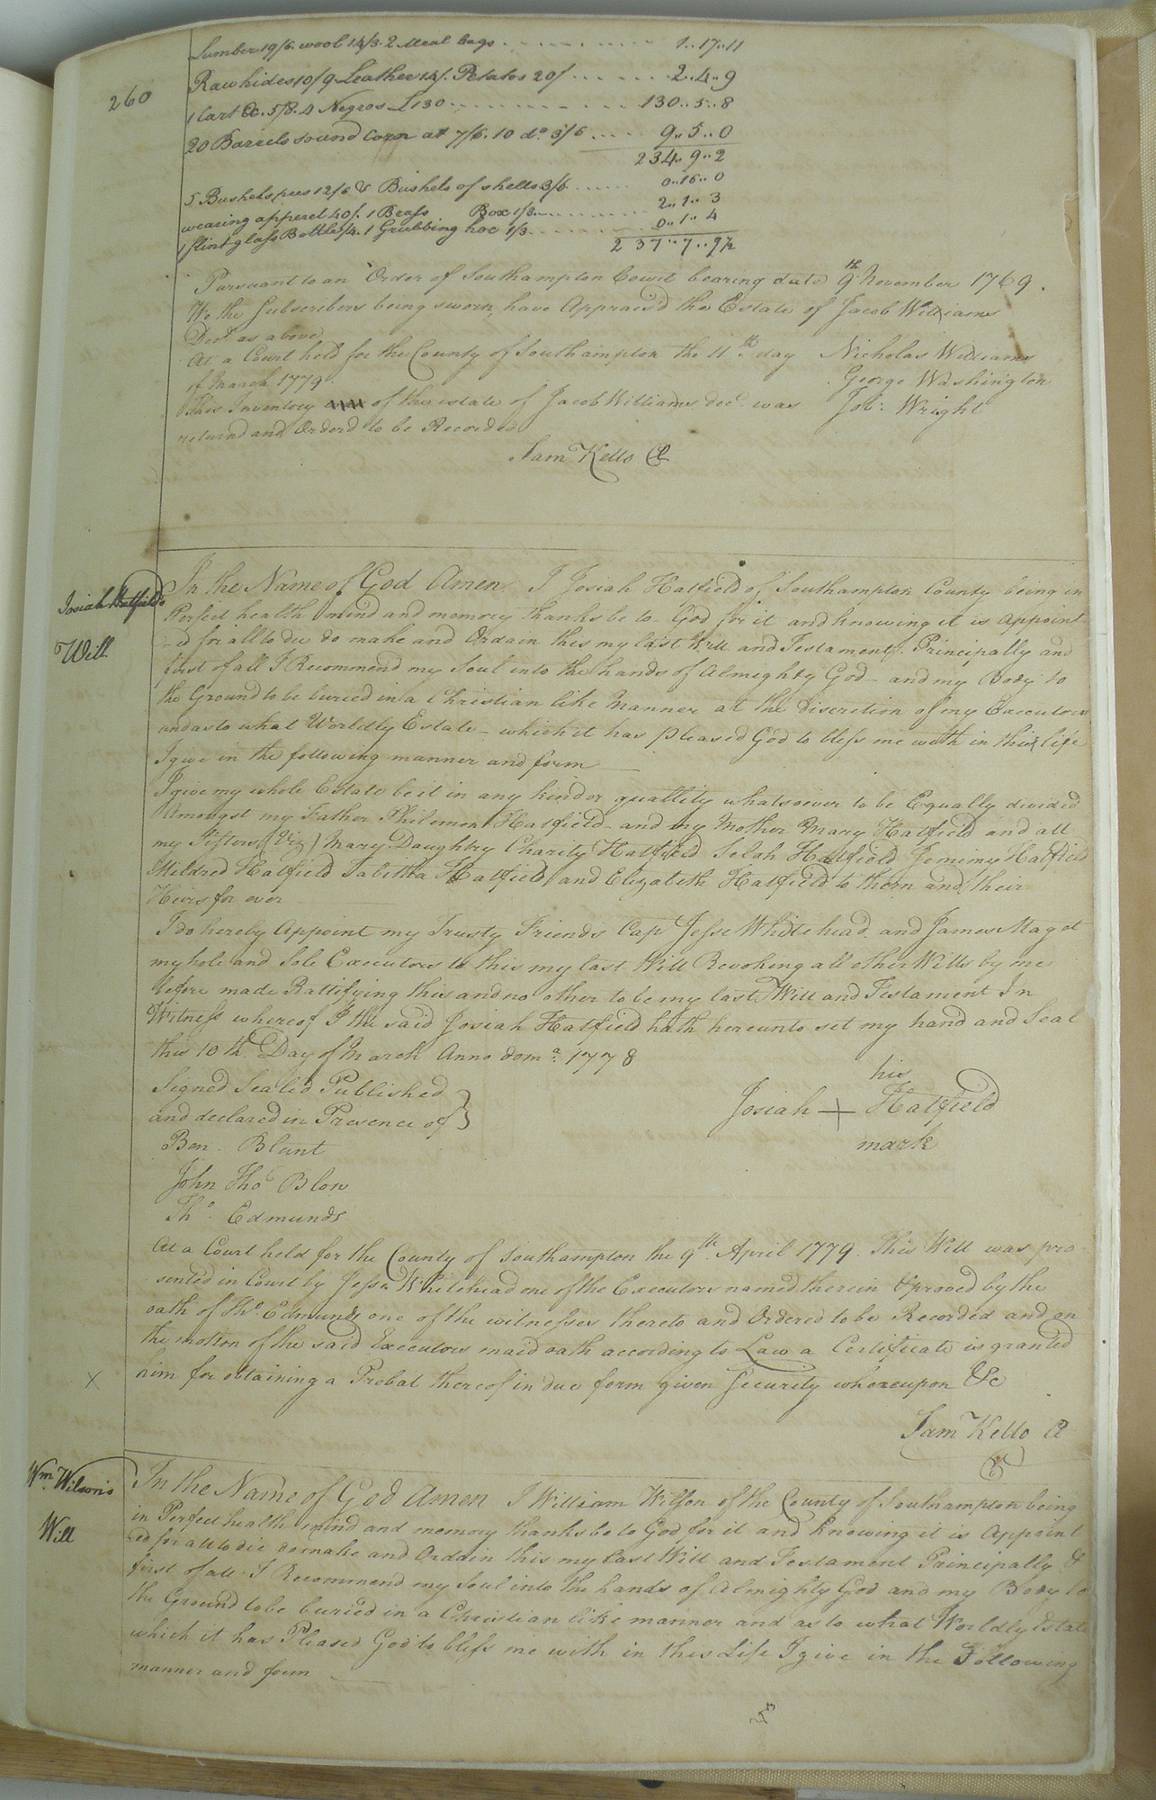 260
Lumber 19/6. wool 14/3. 2 Meal bags 1..17..11
Raw hides 10/9 Leather 14/. Potatos 20/ 2..4..9
1 Cart &c. 5/8. 4 Negros £130 130..5..8
20 Barrels sound Corn at 7/6. 10 do. 3/6 9..5..0
234..9..2
5 Bushels peas 12/6 & Bushels of shells 3/6 0..16..0
wearing apperel 40/. 1 Brass Box 1/3 2..1..3
1 flint glass Bottle /4. 1 Grubbing hoe 1/3 0..1..4
237..7..9½
Pursuant to an Order of Southampton Court bearing date 9th November 1769.
We the Subscribers being sworn have Apprais'd the Estate of Jacob Williams
Decd. as above
At a Court held for the County of Southampton the 11th. day Nicholas Williams
of March 1779. George Washington
This Inventory of the estate of Jacob Williams decd. was Jos: Wright
returnd and Orderd to be Recorded
Sam Kello Cl
Josiah Hatfield's
Will
In the Name of God Amen I Josiah Hatfield of Southampton County being in
Perfect health mind and memory thanks be to God for it and knowing it is appoint
-ed for all to die do make and Ordain this my last Will and Testament. Principally and
first of all I Recommend my Soul into the hands of Almighty God - and my Body to
the Ground to be buried in a Christian like Manner at the Discretion of my Executors
and as to what Worldly Estate - which it has pleased God to bless me with in this life
I give in the following manner and form
I give my whole Estate be it in any kind or quallity whatsoever to be Equally divided
Amongst my Father Philemon Hatfield - and my Mother Mary Hatfield and all
my Sisters (Viz) Mary Daughtry Charity Hatfield Selah Hatfield Jemimy Hatfield
Mildred Hatfield Tabitha Hatfield and Elizabeth Hatfield to them and their
Heirs for ever
I do hereby Appoint my Trusty Friends Cap Jesse Whitehead and James Maget
my hole and Sole Executors to this my last Will Revoking all other Wills by me
before made Rattifying this and no other to be my last Will and Testament In
Witness whereof I the said Josiah Hatfield hath hereunto set my hand and Seal
this 10th Day of March Anno doma. 1778
Signed Sealed Published his
and declared in Presence of } Josiah + Hatfield
Ben. Blunt mark
John Tho Blow
Tho. Edmunds
At a Court held for the County of Southampton the 9th. April 1779. This Will was pre
sented in Court by Jesse Whitehead one of the Executors named therein & proved by the
oath of Tho. Edmunds one of the witnesses thereto and Ordered to be Recorded and on
the motion of the said Executors maid oath according to Law a Certificate is granted
him for obtaining a Probat thereof in due form given Security whereupon &c
X
Sam Kello Cl
Wm. Wilson's
Will
In the Name of God Amen I William Wilson of the County of Southampton being
in Perfect health mind and memory thanks be to God for it and knowing it is Appoint
-ed for all to die do make and Ordain this my last Will and Testament Principally &
first of all I Recommend my Soul into the hands of Almighty God and my Body to
the Ground to be buried in a Christian like manner and as to what Worldly Estate
which it has Pleased God to bless me with in this Life I give in the Following
manner and form